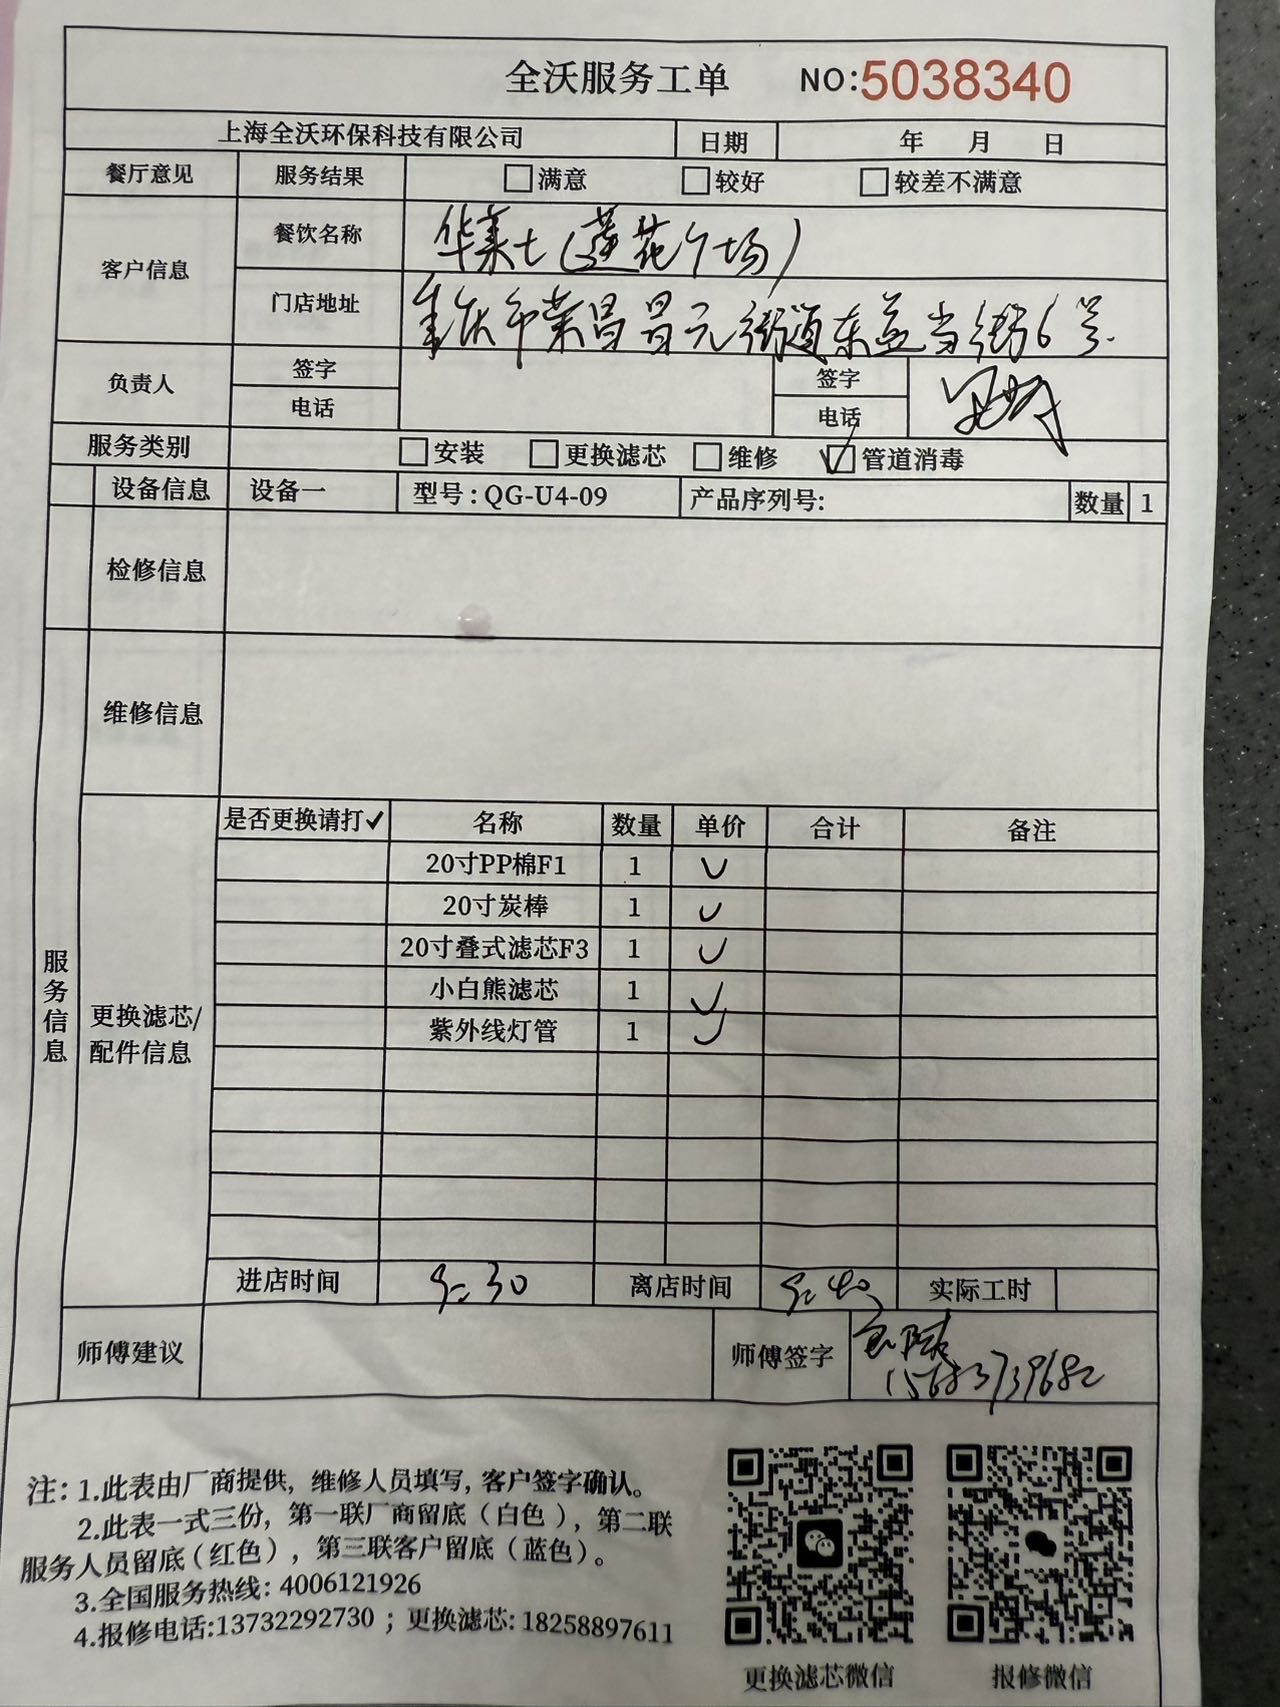 全沃服务工单 NO:5038340
上海全沃环保科技有限公司 日期 年 月 日
餐厅意见 服务结果 □满意 □较好 □较差不满意
客户信息 餐饮名称 华莱士(莲花广场)
门店地址 重庆市荣昌昌元街道东益当街6号.
负责人 签字 签字
电话 电话
服务类别 □安装 □更换滤芯 □维修 ☑管道消毒
设备信息 设备一 型号:QG-U4-09 产品序列号: 数量 1
检修信息
维修信息
服务信息
更换滤芯/配件信息
是否更换请打✓ 名称 数量 单价 合计 备注
20寸PP棉F1 1 ✓
20寸炭棒 1 ✓
20寸叠式滤芯F3 1 ✓
小白熊滤芯 1 ✓
紫外线灯管 1 ✓
进店时间 9:30 离店时间 9:40 实际工时
师傅建议 师傅签字
15683739682
注:1.此表由厂商提供,维修人员填写,客户签字确认。
2.此表一式三份,第一联厂商留底(白色),第二联
服务人员留底(红色),第三联客户留底(蓝色)。
3.全国服务热线:4006121926
4.报修电话:13732292730;更换滤芯:18258897611
更换滤芯微信 报修微信